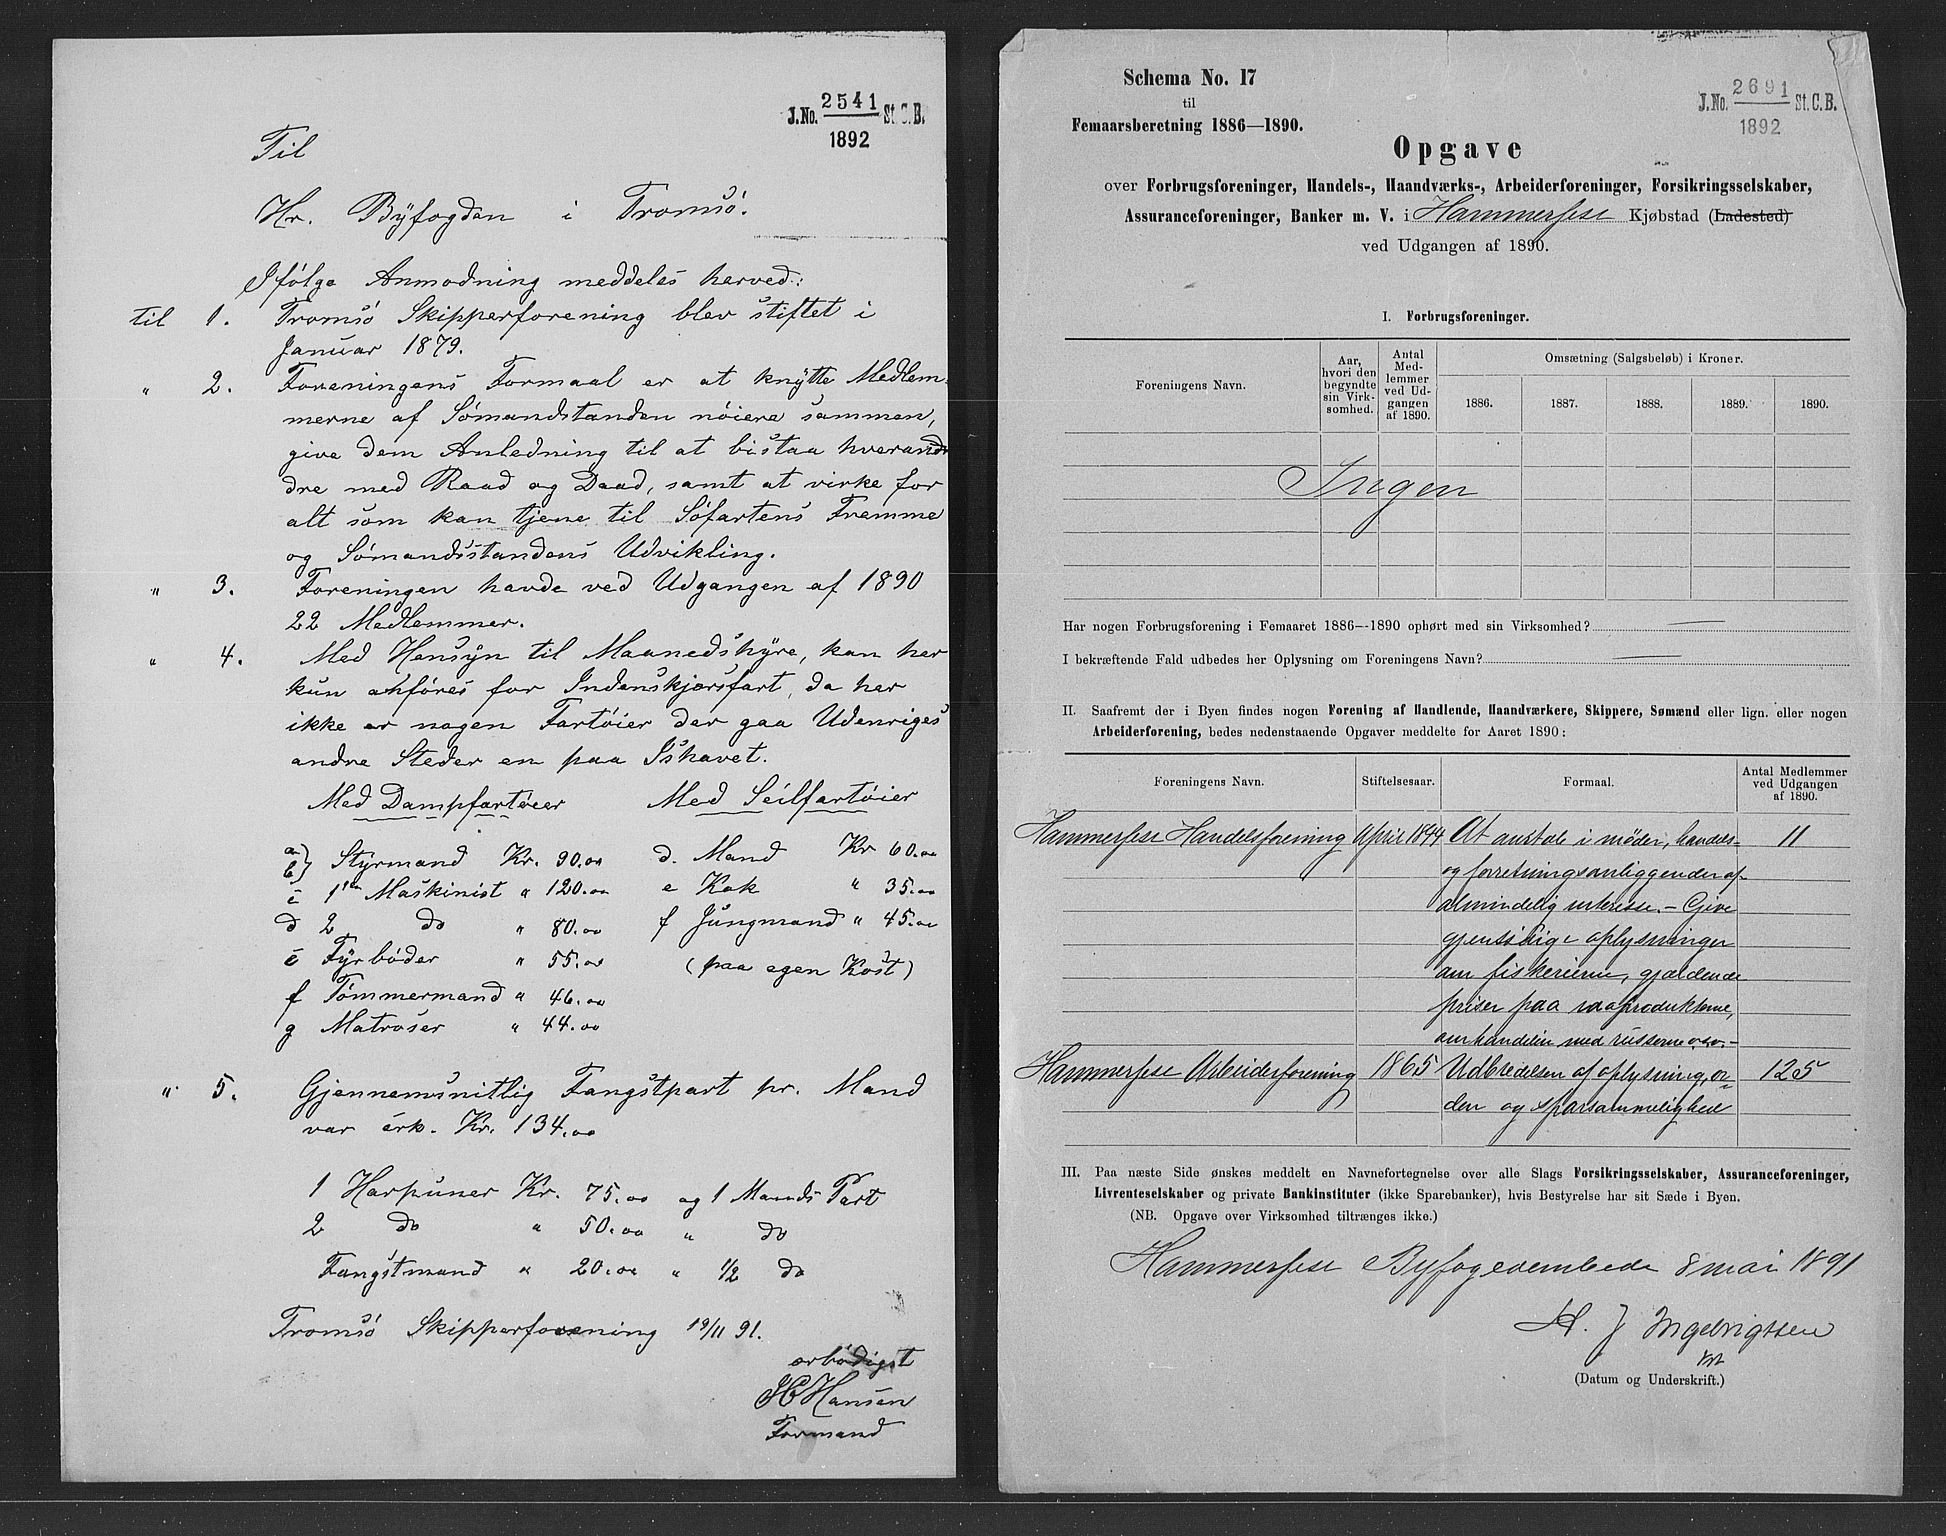 J.No. 2541 St.C.B.
1892
Til
Hr. Byfogden i Tromsö.
Ifölge Anmodning meddeles herved:
til 1. Tromsö Skipperforening blev stiftet i
Januar 1879.
" 2. Foreningens Formaal er at knytte Medlem-
merne af Sömandstanden nöiere sammen,
give dem Anledning til at bistaa hveran-
dre med Raad og Daad, samt at virke for
alt som kan tjene til Söfartens Fremme
og Sömandsstandens Udvikling.
" 3. Foreningen havde ved Udgangen af 1890
22 Medlemmer.
" 4. Med Hensyn til Maanedshyre, kan her
kun anföres for Indenskjærsfart, da her
ikke er nogen Fartöier der gaa Udenriges
andre Steder en paa Ishavet.
Med Dampfartöier Med Seilfartöier
a) b) Styrmand Kr. 90.00 d. Mand Kr 60.00
c 1ste Maskinist " 120.00 e Kok " 35.00
d 2 do " 80.00 f Jungmand " 45.00
e Fyrböder " 55.00 (paa egen Kost)
f Tömmermand " 46.00
g Matroser " 44.00
" 5. Gjennemsnitlig Fangstpart pr. Mand
var cirk. Kr. 134.00
1 Harpuner Kr. 75.00 og 1 Mands Part
2 do " 50.00 " do
Fangstmand " 20.00 " 1/2 do
Tromsö Skipperforening 19/11 91.
ærbödigst
HC Hansen
Formand
Schema No. 17
til
Femaarsberetning 1886—1890.
J.No. 2691 St.C.B.
1892
Opgave
over Forbrugsforeninger, Handels-, Haandværks-, Arbeiderforeninger, Forsikringsselskaber,
Assuranceforeninger, Banker m. V. i Hammerfest Kjøbstad (Ladested)
ved Udgangen af 1890.
I. Forbrugsforeninger.
Foreningens Navn.
Aar,
hvori den
begyndte
sin Virk-
somhed.
Antal
Med-
lemmer
ved Ud-
gangen
af 1890.
Omsætning (Salgsbeløb) i Kroner.
1886. 1887. 1888. 1889. 1890.
Ingen
Har nogen Forbrugsforening i Femaaret 1886—1890 ophørt med sin Virksomhed? —
I bekræftende Fald udbedes her Oplysning om Foreningens Navn? —
II. Saafremt der i Byen findes nogen Forening af Handlende, Haandværkere, Skippere, Sømænd eller lign. eller nogen
Arbeiderforening, bedes nedenstaaende Opgaver meddelte for Aaret 1890:
Foreningens Navn. Stiftelsesaar. Formaal.
Antal Medlemmer
ved Udgangen
af 1890.
Hammerfest Handelsforening April 1844 At omtale i möder, handels- 11
og forretningsanliggender af
almindelig interesse. – Give
gjensidige oplysninger
om fiskerierne, gjældende
priser paa raaprodukterne,
om handelen med russerne o.s.v. –
Hammerfest Arbeiderforening 1865 Udbredelsen af oplysning, or- 125
den og sparsommelighed
III. Paa næste Side ønskes meddelt en Navnefortegnelse over alle Slags Forsikringsselskaber, Assuranceforeninger,
Livrenteselskaber og private Bankinstituter (ikke Sparebanker), hvis Bestyrelse har sit Sæde i Byen.
(NB. Opgave over Virksomhed tiltrænges ikke.)
Hammerfest Byfogedembede 8 mai 1891
H. J Ingebrigtsen
kst
(Datum og Underskrift.)